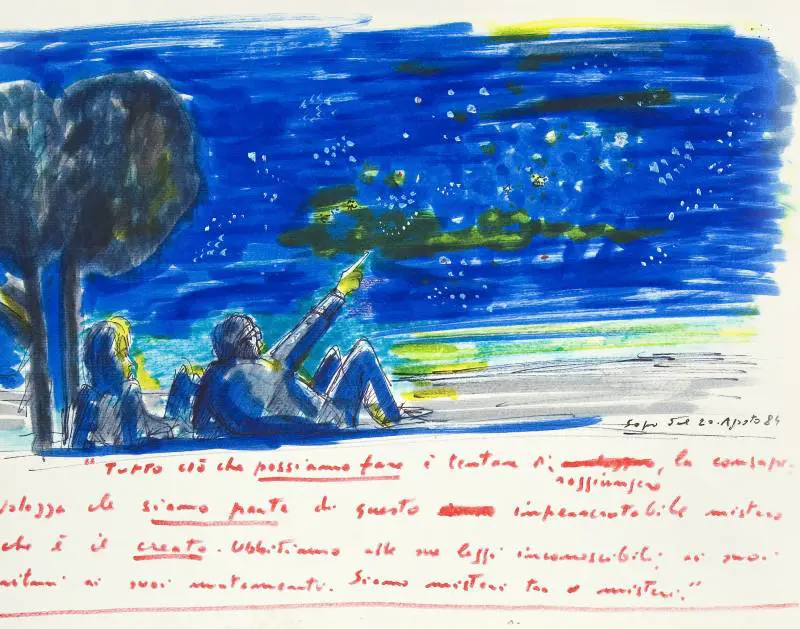 20. Agosto 84
"Tutto ciò che possiamo fare è tentare di, la consape-
raggiungere
volezza che siamo parte di questo impenscrutabile mistero
che è il creato. Ubbidiamo alle sue leggi inconoscibili, ai suoi
ritmi ai suoi mutamenti. Siamo misteri tra misteri."